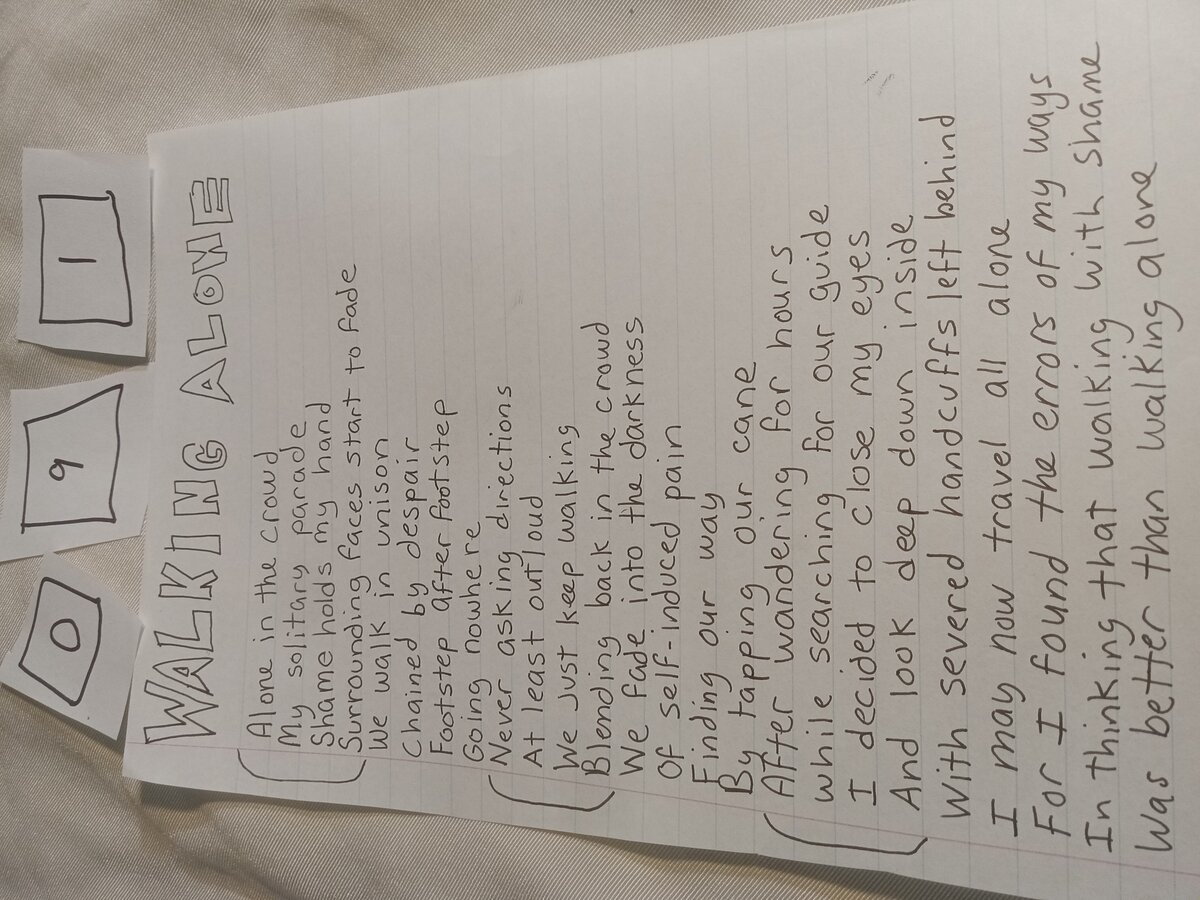 0 9 1
WALKING ALONE
Alone in the crowd
My solitary parade
Shame holds my hand
Surrounding faces start to fade
We walk in unison
Chained by despair
Footstep after footstep
Going nowhere
Never asking directions
At least out loud
We just keep walking
Blending back in the crowd
We fade into the darkness
Of self-induced pain
Finding our way
By tapping our cane
After wandering for hours
while searching for our guide
I decided to close my eyes
And look deep down inside
With severed handcuffs left behind
I may now travel all alone
For I found the errors of my ways
In thinking that walking with shame
Was better than walking alone